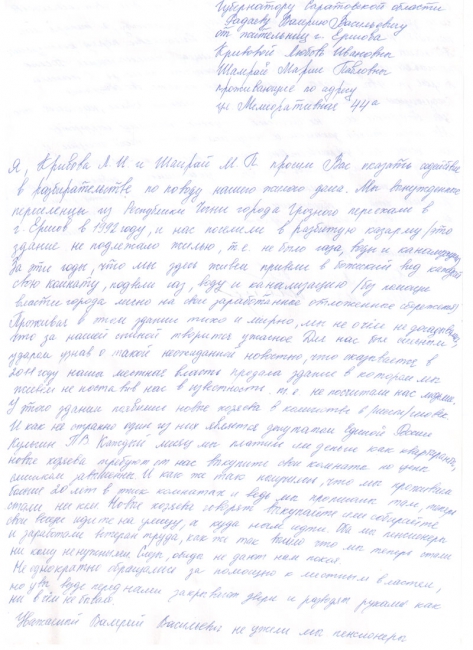 Губернатору Саратовской области
Радаеву Валерию Васильевичу
от жительниц г. Ершова
Кривовой Любовь Ивановны
Шамрай Марии Павловны
проживающие по адресу
ул Мелиоративная 44а
Я, Кривова Л. И и Шамрай М. П просим Вас оказать содействие
в разбирательстве по поводу нашего жилого дома. Мы вынужденные
переселенцы из Республики Чечни города Грозного переехали в
г. Ершов в 1992 году, и нас поселили в разбитую казарму /это
здание не подлежало жилью, т.е. не было газа, воды и канализации
За эти годы, что мы здесь живем привели в божеский вид каждый
свою комнату, подвели газ, воду и канализацию /без помощи
власти города лично на свои заработанные отложенные сбережения)
Проживая в этом здании тихо и мирно, мы не о чем не догадывались
что за нашей спиной творится ужасное Для нас был сильный
ударом узнав о такой неожиданной новостью, что оказывается в
2011 году наша местная власть продала здание в котором мы
живем не поставив нас в известность т.е. не посчитали нас людьми.
У этого здания появились новые хозяева в количестве
И как не странно один из них является депутатом Единой России
П.В. Каждый месяц мы платим им деньги как квартиранты,
новые хозяева требуют от нас выкупить свои комнаты по цене
слишком И как же так получилось, что мы проживали
больше 20 лет в этих комнатах и ведь мы прописаны там, теперь
стали ни кем Новые хозяева говорят выкупайте или собирайте
свои вещи идите на улицу, а куда нам идти. Ведь мы пенсионеры
и заработали ветеран труда, как же так вышло что мы теперь стали
ни кому не нужными Слезы, обиды не дают нам покоя.
Не однократно обращались за помощью к местным властям,
но увы везде перед нами закрывают двери и разводят руками как
ни в чем не бывало.
Уважаемый Валерий Васильевич не ужели мы пенсионеры